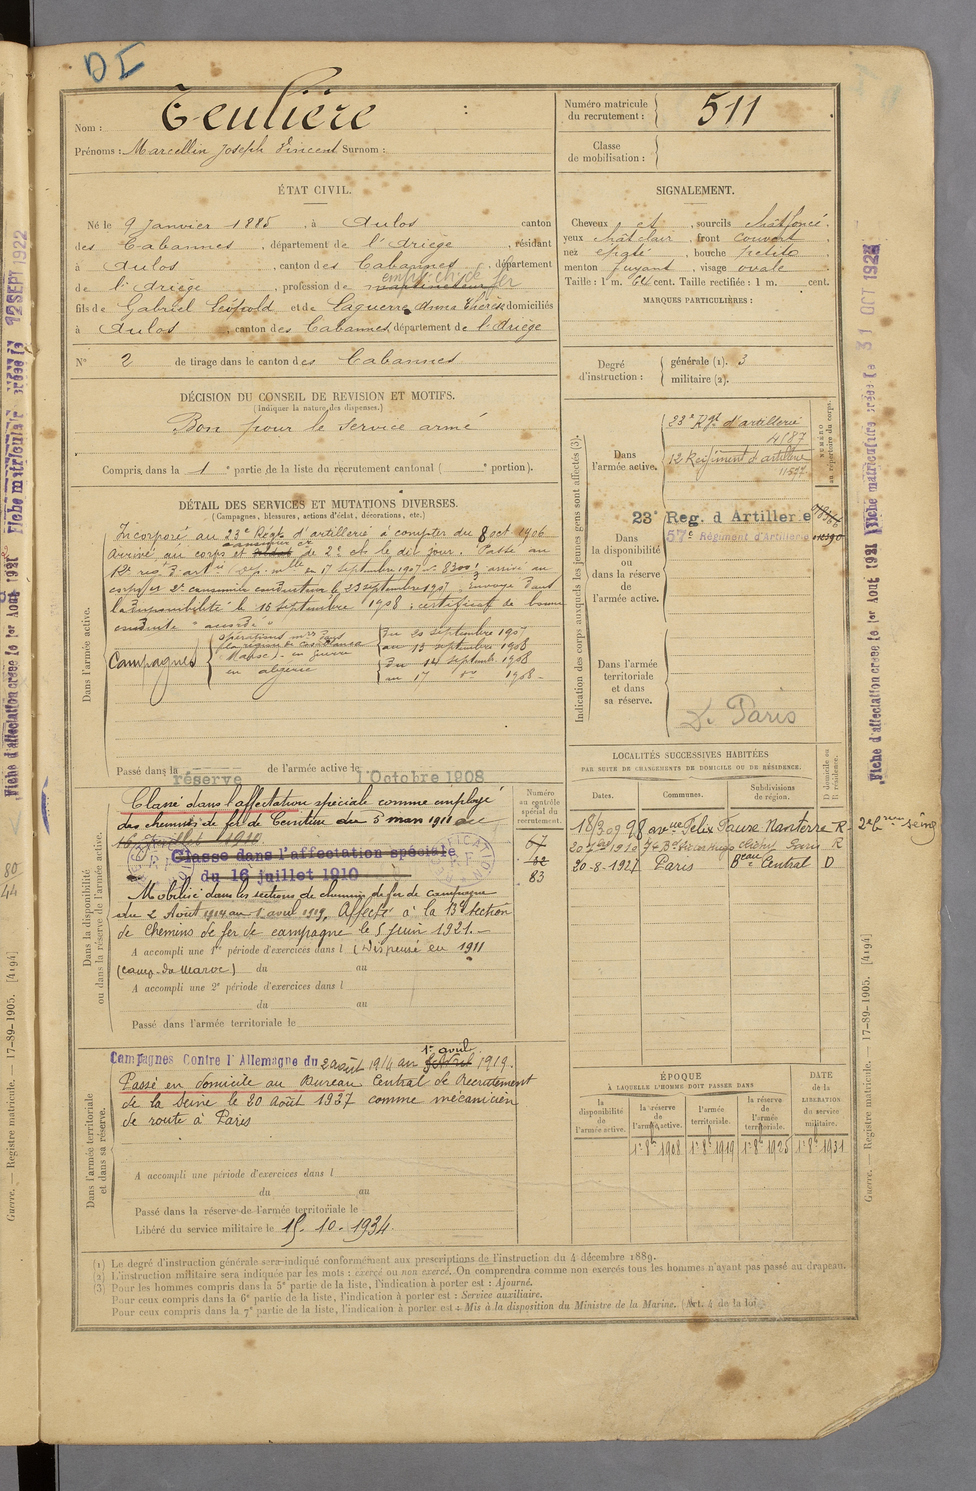 DI
Nom : Teulière
Prénoms : Marcellin Joseph Vincent Surnom :
Numéro matricule du recrutement : 511
Classe de mobilisation :
ÉTAT CIVIL.
Né le 9 Janvier 1885, à Aulos canton
des Cabannes, département de l'Ariège, résidant
à Aulos, canton des Cabannes, département
de l'Ariège, profession de empl. ch. de fer
fils de Gabriel Léopold et de Laguerre Anna Thérèse domiciliés
à Aulos, canton des Cabannes, département de l'Ariège
N° 2 de tirage dans le canton des Cabannes
SIGNALEMENT.
Cheveux et, sourcils chât foncé,
yeux chât clair, front couvert
nez épaté, bouche petite
menton fuyant, visage ovale
Taille : 1 m. 64 cent. Taille rectifiée : 1 m. cent.
MARQUES PARTICULIÈRES :
Degré d'instruction : générale (1). 3
militaire (2).
DÉCISION DU CONSEIL DE REVISION ET MOTIFS.
(Indiquer la nature des dispenses.)
Bon pour le service armé
Compris dans la 1e partie de la liste du recrutement cantonal ( e portion).
DÉTAIL DES SERVICES ET MUTATIONS DIVERSES.
(Campagnes, blessures, actions d'éclat, décorations, etc.)
Dans l'armée active.
Incorporé au 23e Régt d'artillerie à compter du 8 oct 1906
Arrivé au corps et de 2e cl. le dit jour. Passé au
12e rég. d'art le 17 septembre 1907 arrivé au
corps et 2e canonnier conducteur le 23 septembre 1907. Envoyé dans
la disponibilité le 18 septembre 1908 ; certificat de bonne
conduite "accordé"
Campagnes
opérations dans
la région de Casablanca
Maroc) en guerre
en algérie
du 20 septembre 1907
au 13 septembre 1908
du 14 septembre 1908
au 17 do 1908
Passé dans la réserve de l'armée active le 1 Octobre 1908
Indication des corps auxquels les jeunes gens sont affectés (3).
NUMÉRO au répertoire du corps.
Dans l'armée active.
23e Rgt d'artillerie
4187
12 Régiment d'artillerie
11527
Dans la disponibilité ou dans la réserve de l'armée active.
23e Reg. d Artillerie
57e Régiment d'Artillerie
Dans l'armée territoriale et dans sa réserve.
D. Paris
Dans la disponibilité ou dans la réserve de l'armée active.
Classé dans l'affectation spéciale comme employé
des chemins de fer de Ceinture du 5 mars 1911 au
16 Juillet 1910.
Classé dans l'affectation spéciale
du 16 juillet 1910
Mobilisé dans les sections de chemins de fer de campagne
du 2 Août 1914 au 1 avril 1919. Affecté à la 13e Section
de Chemins de fer de campagne le 5 Juin 1921.
A accompli une 1re période d'exercices dans l (Dispensé en 1911
(camp. du Maroc) du au
A accompli une 2e période d'exercices dans l
du au
Passé dans l'armée territoriale le
Numéro au contrôle spécial du recrutement.
67
82
83
LOCALITÉS SUCCESSIVES HABITÉES
PAR SUITE DE CHANGEMENTS DE DOMICILE OU DE RÉSIDENCE.
Dates. Communes. Subdivisions de région. D domicile ou R résidence.
18/3 09 98 avue Félix Faure Nanterre R
1910 74 Bd Victor Hugo Clichy Paris R
20-8-1927 Paris Beau Central D
Dans l'armée territoriale et dans sa réserve.
Campagnes Contre l'Allemagne du 2 août 1914 au 1er avril 1919.
Passé en domicile au Bureau Central de Recrutement
de la Seine le 20 Août 1927 comme mécanicien
de route à Paris
A accompli une période d'exercices dans l
du au
Passé dans la réserve de l'armée territoriale le
Libéré du service militaire le 15. 10. 1934.
ÉPOQUE
À LAQUELLE L'HOMME DOIT PASSER DANS
la disponibilité de l'armée active.
la réserve de l'armée active.
l'armée territoriale.
la réserve de l'armée territoriale.
DATE de la LIBÉRATION du service militaire.
1r 8b 1908 1r 8b 1919 1r 8b 1925 1r 8b 1931
(1) Le degré d'instruction générale sera indiqué conformément aux prescriptions de l'instruction du 4 décembre 1889.
(2) L'instruction militaire sera indiquée par les mots : exercé ou non exercé. On comprendra comme non exercés tous les hommes n'ayant pas passé au drapeau.
(3) Pour les hommes compris dans la 5e partie de la liste, l'indication à porter est : Ajourné.
Pour ceux compris dans la 6e partie de la liste, l'indication à porter est : Service auxiliaire.
Pour ceux compris dans la 7e partie de la liste, l'indication à porter est : Mis à la disposition du Ministre de la Marine. (Art. 4 de la loi.)
Guerre. — Registre matricule. — 17-89-1905. [4194]
Guerre. — Registre matricule. — 17-89-1905. [4194]
Fiche d'affectation créée le 1er Août 1921
Fiche matricule créée le 12 SEPT 1922
Fiche d'affectation créée le 1er Août 1921
Fiche matricule créée le 31 OCT
80
44